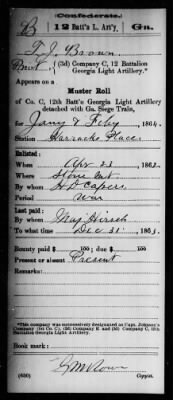 Confederate.
B 12 Batt'n L. Art'y. Ga.
T. J. Brown
Pvt., (3d) Company C, 12 Battalion
Georgia Light Artillery.*
Appears on a
Muster Roll
of Co. C, 12th Batt'n Georgia Light Artillery
detached with Ga. Siege Train,
for Jany & Feby, 1864.
Station Place.
Enlisted:
When Apr 23, 1862.
Where Stone Mt
By whom Capers
Period War
Last paid:
By whom Maj Hirsch
To what time Dec 31, 1863.
Bounty paid $ 100; due $ 100
Present or absent Present
Remarks:
*This company was successively designated as Capt. Johnson's
Company (1st Co. C), (3d) Company E and (3d) Company C, 12th Battalion
Georgia Light Artillery.
Book mark:
G M Nown
(650) Copyist.